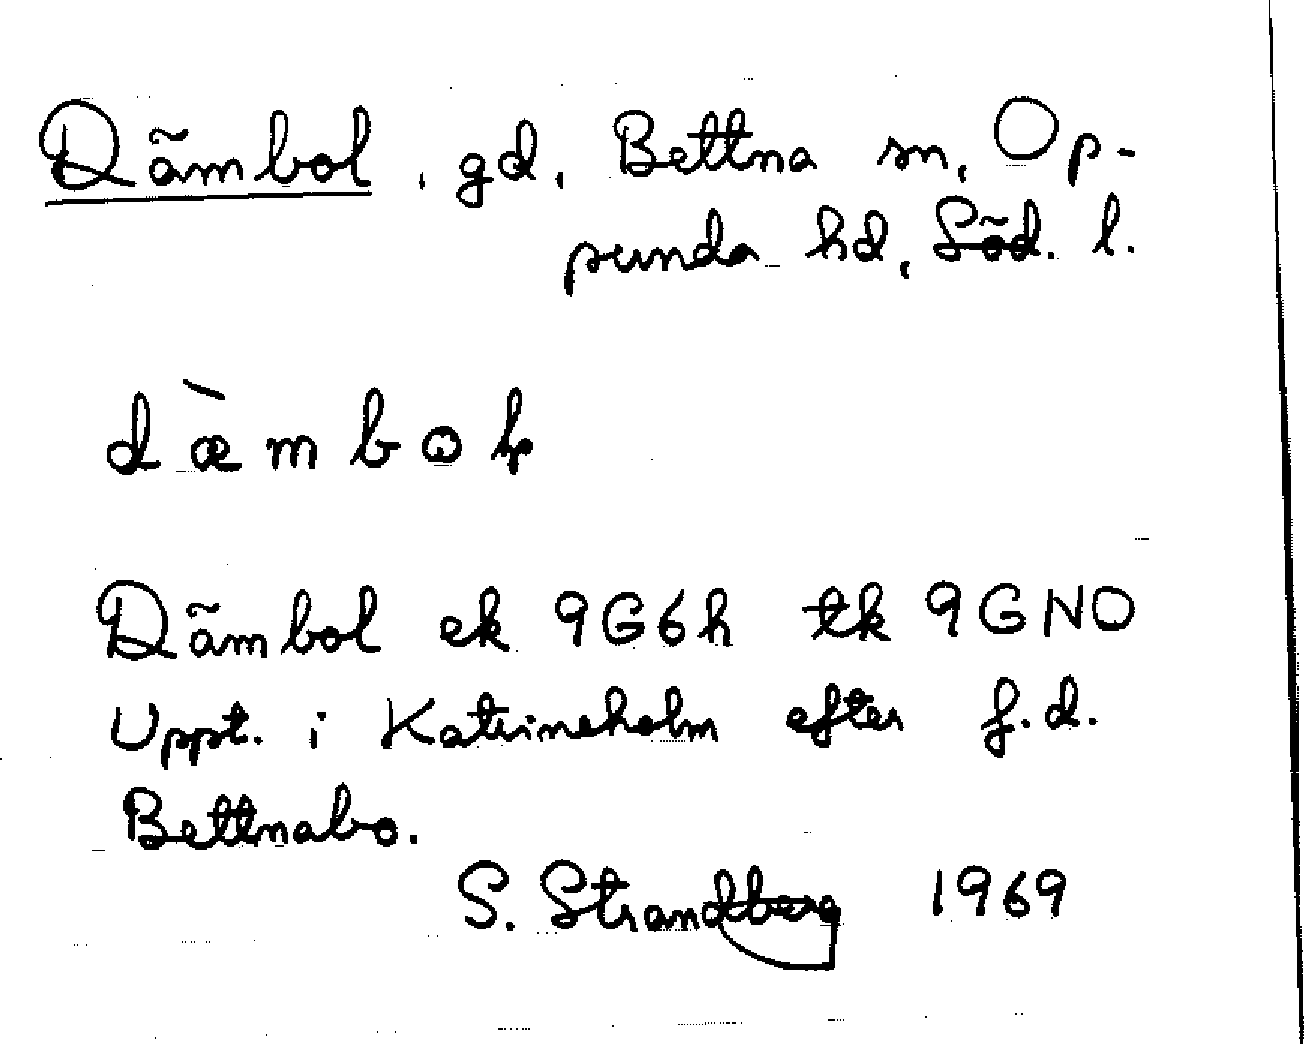 Dämbol, gd, Bettna sn, Op-
punda hd, Söd. l.
dæ̀mboł
Dämbol ek 9G6h tk 9GNO
Uppt. i Katrineholm efter f.d.
Bettnabo.
S. Strandberg 1969